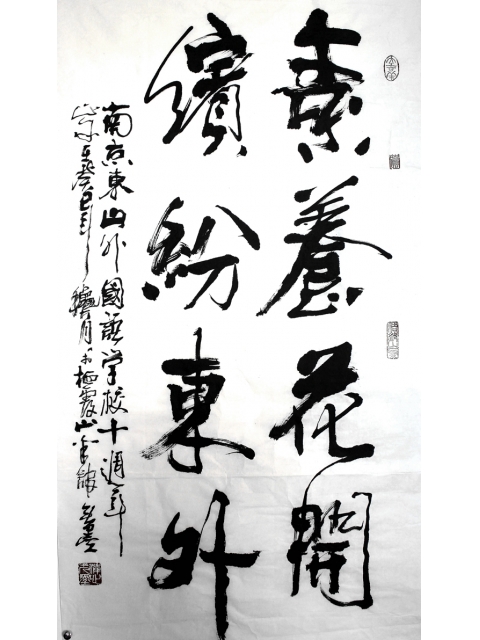 素養花開
繽紛東外
南京東山外國語學校十週年
歲在癸巳年 月於栖霞山